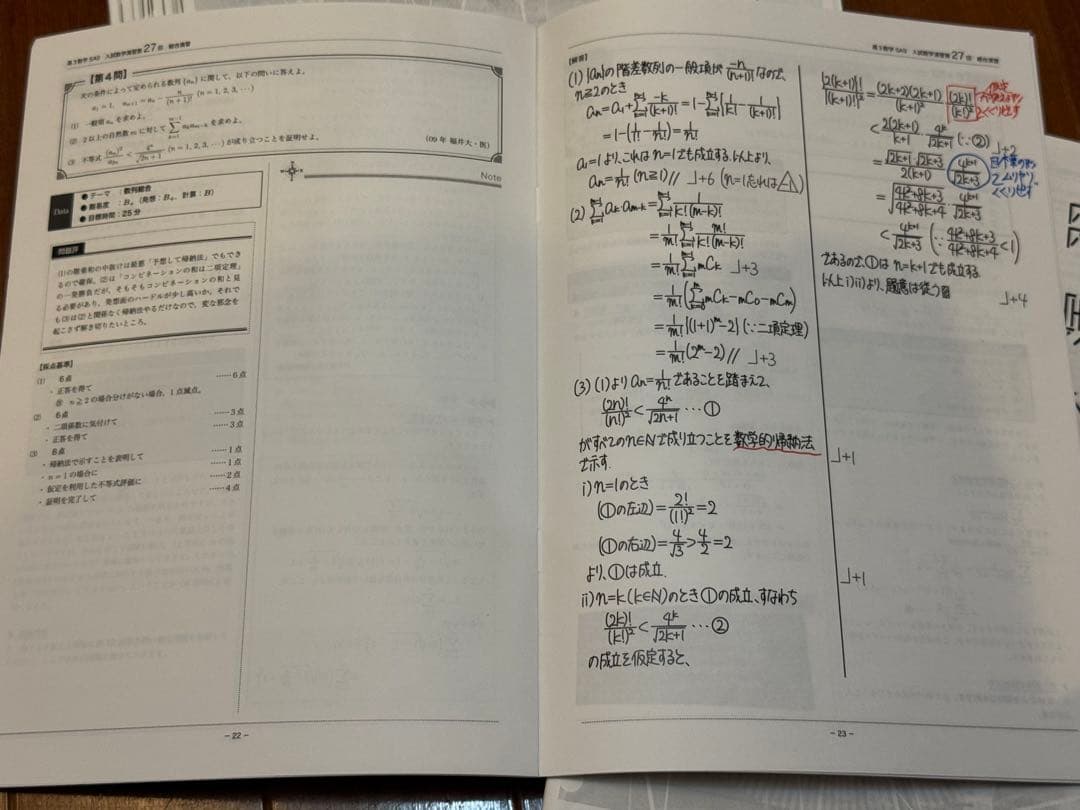 高3数学SAβ 入試数学演習第27回 総合演習
【第4問】
次の条件によって定められる数列{a_n}に関して,以下の問いに答えよ。
a_1=1, a_{n+1}=a_n-\frac{n}{(n+1)!} (n=1, 2, 3, …)
(1) 一般項a_nを求めよ。
(2) 2以上の自然数mに対して\sum_{k=1}^{m-1}a_k a_{m-k}を求めよ。
(3) 不等式\frac{(a_n)^2}{a_{2n}}<\frac{4^n}{\sqrt{2n+1}} (n=1, 2, 3, …)が成り立つことを証明せよ。
('09 福井大・医)
Data
● テーマ : 数列総合
● 難易度 : B_+ (発想:B_+, 計算:B)
● 目標時間:25分
Note
問題評
(1)の階差和の中抜けは最悪「予想して帰納法」でもでき
るので確保。(2)は「コンビネーションの和は二項定理」
の一発勝負だが、そもそもコンビネーションの和と見
る必要があり、発想面のハードルが少し高いか。それで
も(3)は(2)と関係なく帰納法やるだけなので、変な邪念を
起こさず解き切りたいところ。
【採点基準】
(1) 6点
・正答を得て ……6点
※ n≧2の場合分けがない場合、1点減点。
(2) 6点
・二項係数に気付けて ……3点
・正答を得て ……3点
(3) 8点
・帰納法で示すことを説明して ……1点
・n=1の場合に ……1点
・仮定を利用した不等式評価に ……2点
・証明を完了して ……4点
- 22 -
高3数学SAβ 入試数学演習第27回 総合演習
【解答】
(1) {a_n}の階差数列の一般項が\frac{-n}{(n+1)!}なので、
n≧2のとき
a_n=a_1+\sum_{k=1}^{n-1}\frac{-k}{(k+1)!}=1-\sum_{k=1}^{n-1}{\frac{1}{k!}-\frac{1}{(k+1)!}}
=1-(\frac{1}{1!}-\frac{1}{n!})=\frac{1}{n!}
a_1=1より、これはn=1でも成立する。以上より、
a_n=\frac{1}{n!}(n≧1)// 」+6 (n=1忘れは△1)
(2) \sum_{k=1}^{m-1}a_k a_{m-k}=\sum_{k=1}^{m-1}\frac{1}{k!(m-k)!}
=\frac{1}{m!}\sum_{k=1}^{m-1}\frac{m!}{k!(m-k)!}
=\frac{1}{m!}\sum_{k=1}^{m-1}mCk 」+3
=\frac{1}{m!}(\sum_{k=0}^{m}mCk-mC0-mCm)
=\frac{1}{m!}{(1+1)^m-2}(∵二項定理)
=\frac{1}{m!}(2^m-2)// 」+3
(3) (1)よりa_n=\frac{1}{n!}であることを踏まえて、
\frac{(2n)!}{(n!)^2}<\frac{4^n}{\sqrt{2n+1}} …①
がすべてのn∈Nで成り立つことを数学的帰納法
で示す. 」+1
i) n=1のとき
(①の左辺)=\frac{2!}{(1!)^2}=2
(①の右辺)=\frac{4}{\sqrt{3}}>\frac{4}{2}=2
より、①は成立. 」+1
ii) n=k(k∈N)のとき①の成立、すなわち
\frac{(2k)!}{(k!)^2}<\frac{4^k}{\sqrt{2k+1}} …②
の成立を仮定すると、
\frac{{2(k+1)}!}{{(k+1)!}^2}=\frac{(2k+2)(2k+1)}{(k+1)^2}\frac{(2k)!}{(k!)^2}
<\frac{2(2k+1)}{k+1}\frac{4^k}{\sqrt{2k+1}}(∵②) 」+2
=\frac{\sqrt{2k+1}\sqrt{2k+3}}{2(k+1)}\frac{4^{k+1}}{\sqrt{2k+3}}
=\sqrt{\frac{4k^2+8k+3}{4k^2+8k+4}}\cdot\frac{4^{k+1}}{\sqrt{2k+3}}
<\frac{4^{k+1}}{\sqrt{2k+3}}(∵\frac{4k^2+8k+3}{4k^2+8k+4}<1)
であるので、①はn=k+1でも成立する.
以上i)ii)より、題意は従う 」+4
- 23 -